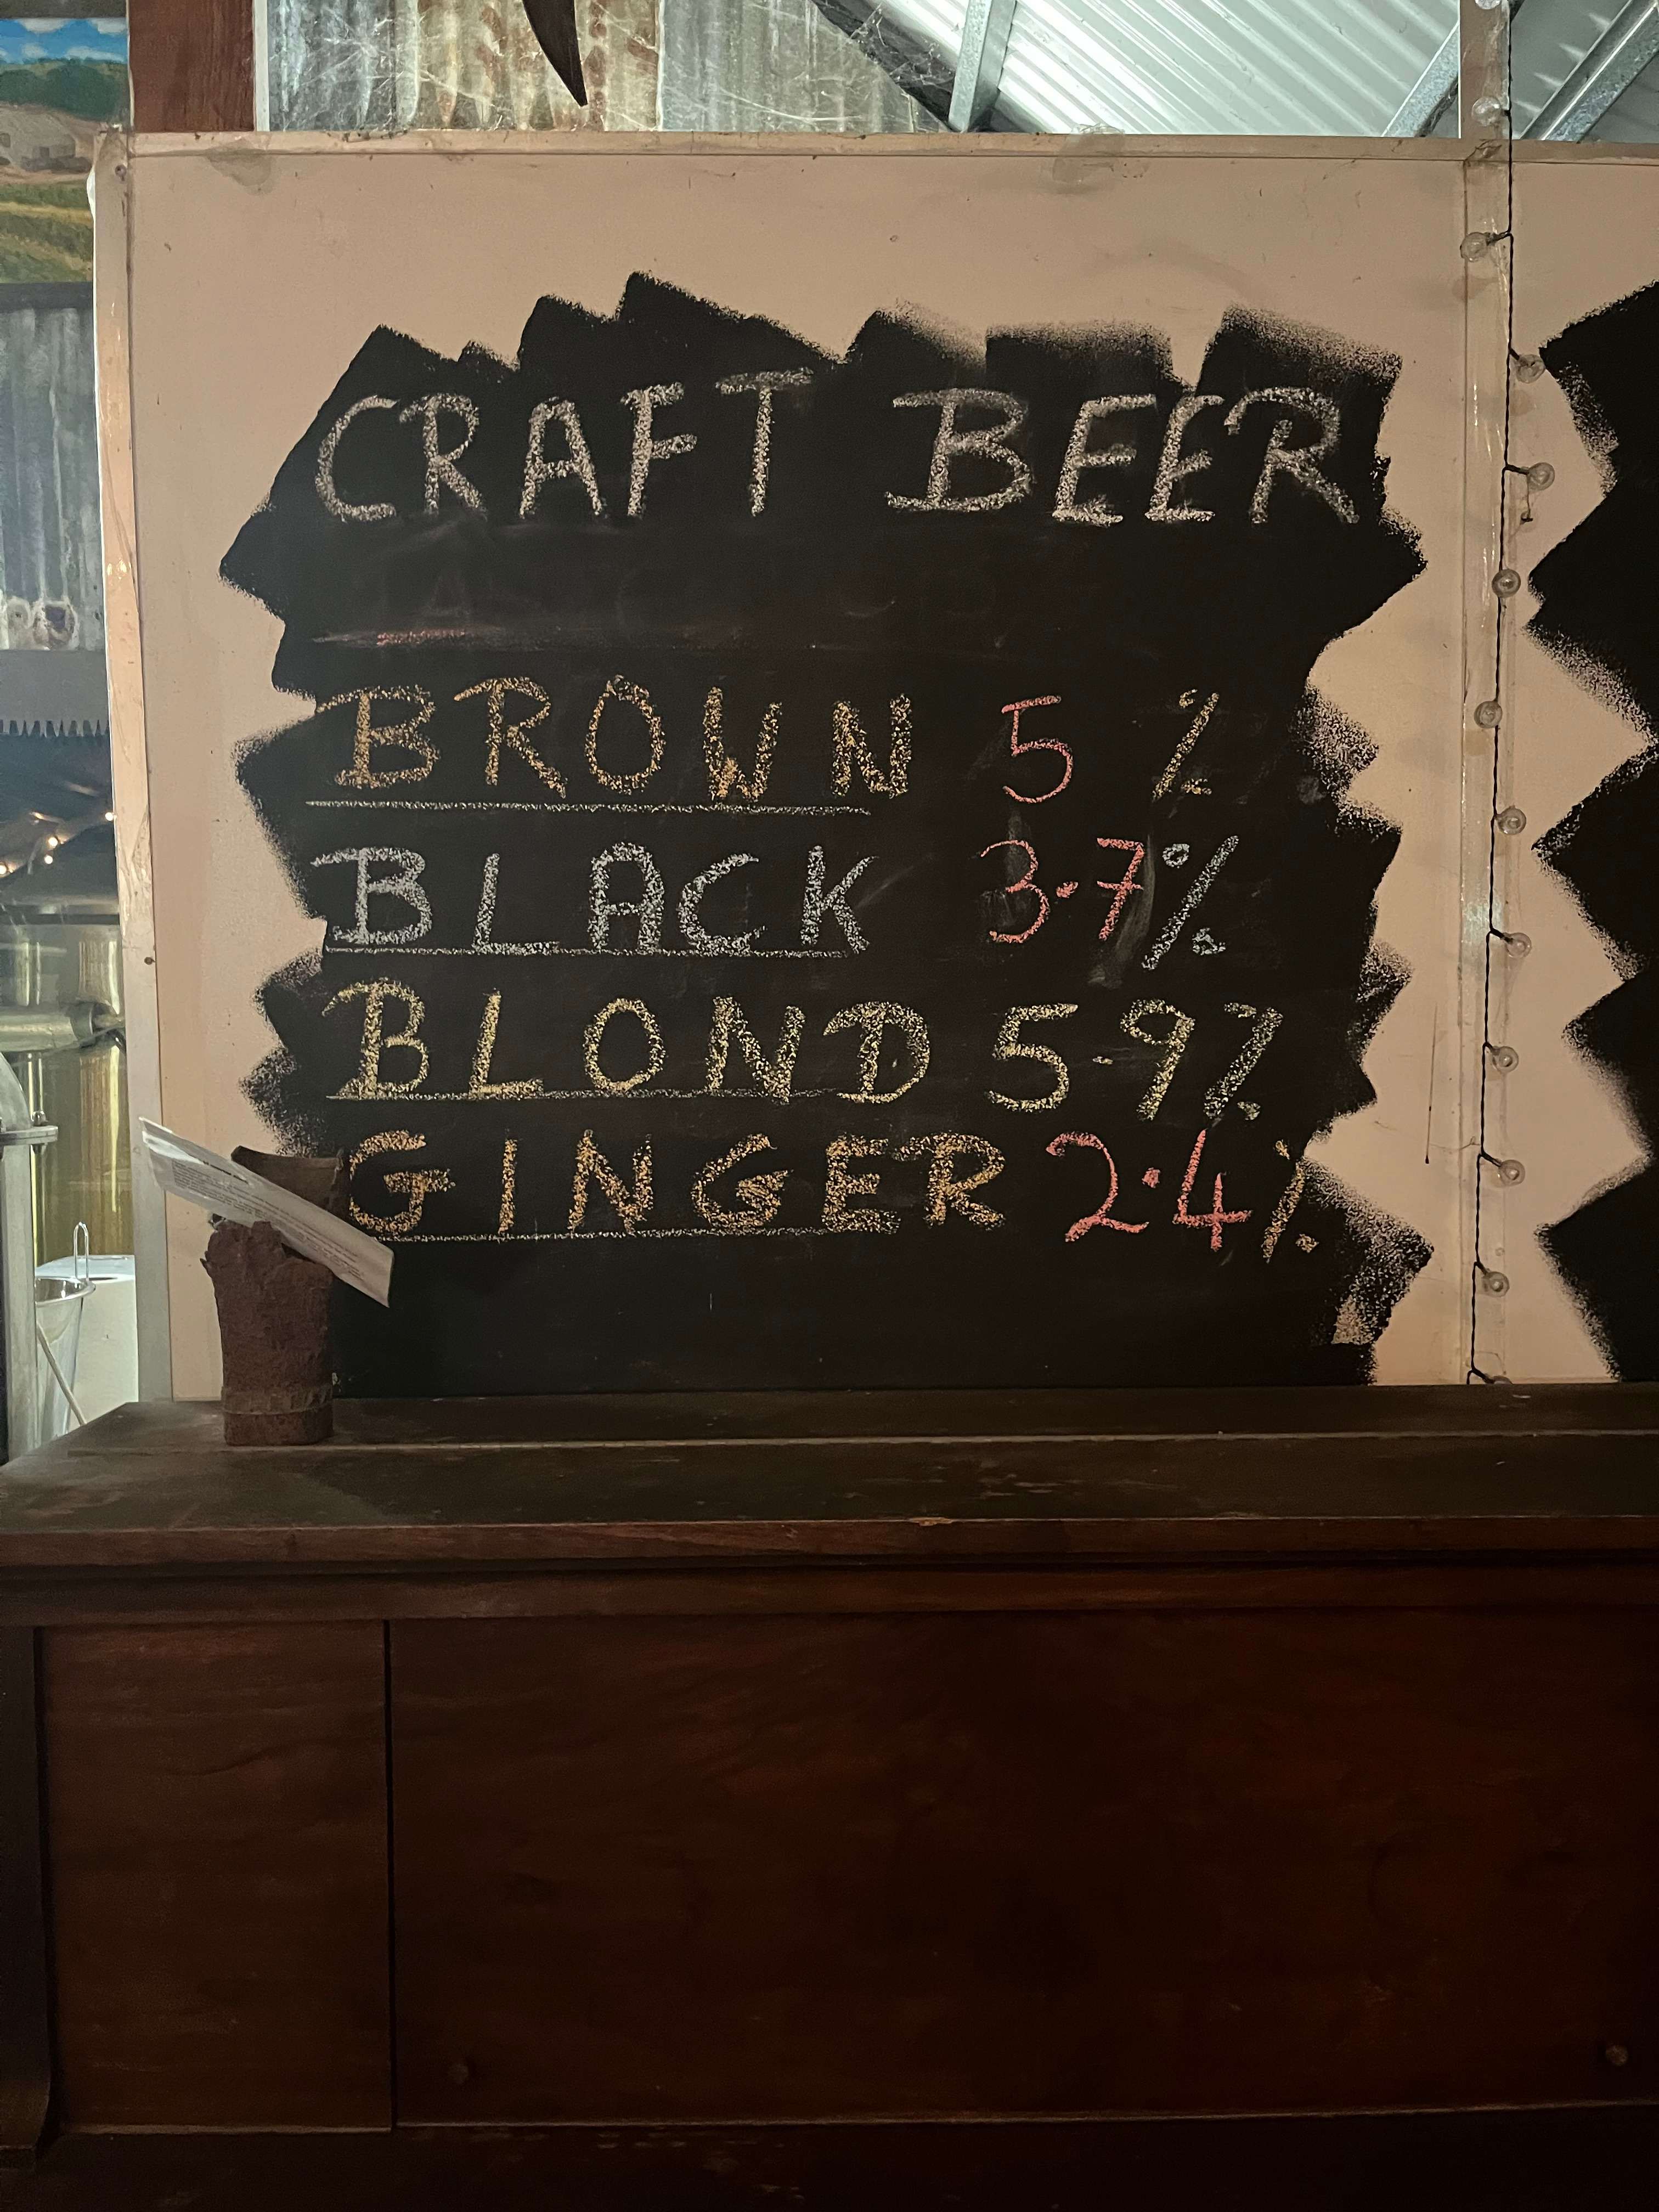 CRAFT BEER
BROWN 5 %
BLACK 3.7%
BLOND 5.9%
GINGER 2.4%